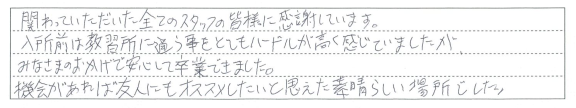 関わっていただいた全てのスタッフの皆様に感謝しています。
入所前は教習所に通う事をとてもハードルが高く感じていましたが、
みなさまのおかげで安心して卒業できました。
機会があれば友人にもオススメしたいと思えた素晴らしい場所でした!